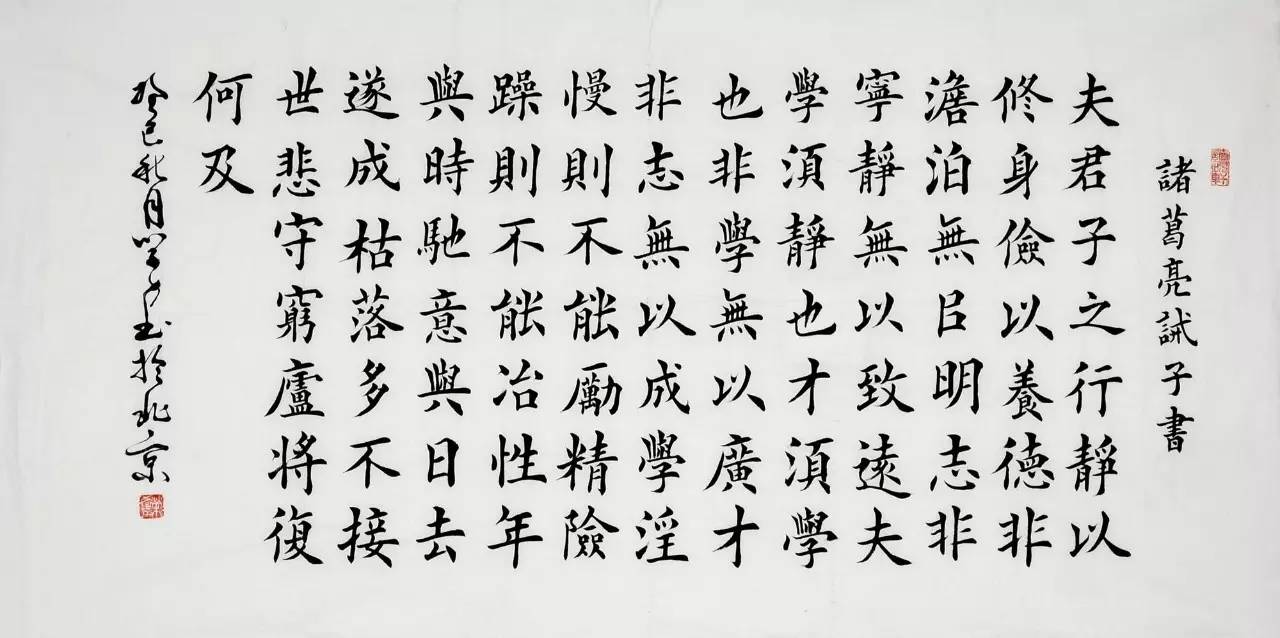 諸葛亮誡子書
夫君子之行靜以
修身儉以養德非
澹泊無㠯明志非
寧靜無以致遠夫
學須靜也才須學
也非學無以廣才
非志無以成學淫
慢則不能勵精險
躁則不能冶性年
與時馳意與日去
遂成枯落多不接
世悲守窮廬將復
何及
癸巳秋月書於北京